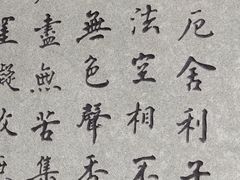 厄舍利子
法空相不
無色聲香
盡無苦集
罣礙故